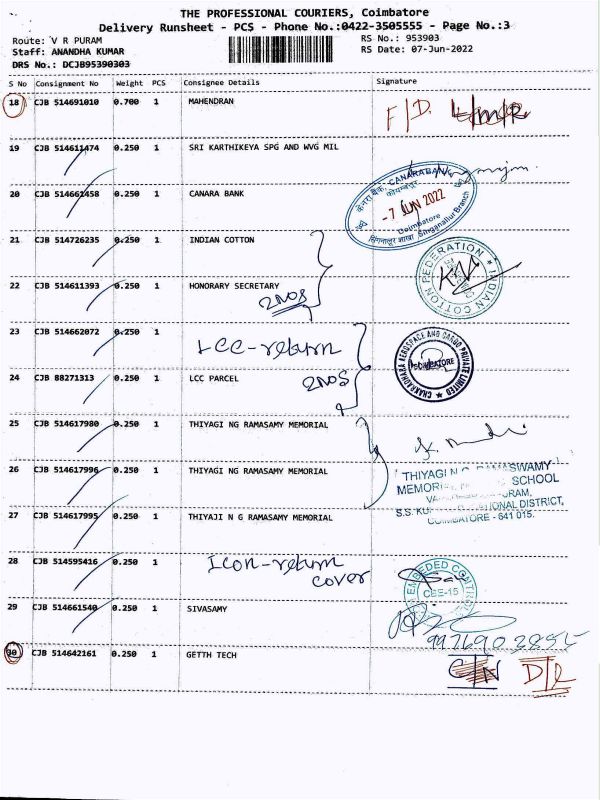 THE PROFESSIONAL COURIERS, Coimbatore
Delivery Runsheet - PCS - Phone No.:0422-3505555 - Page No.:3
Route: V R PURAM
RS No.: 953903
Staff: ANANDHA KUMAR
RS Date: 07-Jun-2022
DRS No.: DCJB95390303
S No Consignment No Weight PCS Consignee Details Signature
18 CJB 514691010 0.700 1 MAHENDRAN
19 CJB 514611474 0.250 1 SRI KARTHIKEYA SPG AND WVG MIL
20 CJB 514661458 0.250 1 CANARA BANK
केनरा बैंक, CANARA BANK
कोयम्बत्तूर
-7 JUN 2022
Coimbatore
सिंगानल्लूर शाखा Singanallur Branch
21 CJB 514726235 0.250 1 INDIAN COTTON
INDIAN COTTON FEDERATION
22 CJB 514611393 0.250 1 HONORARY SECRETARY
2NOS
23 CJB 514662072 0.250 1 LCC-return
CHAKRADHARA AEROSPACE AND CARGO PRIVATE LIMITED
COIMBATORE
24 CJB 88271313 0.250 1 LCC PARCEL
2NOS
25 CJB 514617980 0.250 1 THIYAGI NG RAMASAMY MEMORIAL
26 CJB 514617996 0.250 1 THIYAGI NG RAMASAMY MEMORIAL
THIYAGI N.G. RAMASWAMY
SCHOOL
27 CJB 514617995 0.250 1 THIYAJI N G RAMASAMY MEMORIAL
DISTRICT,
COIMBATORE - 641 015.
28 CJB 514595416 0.250 1 Icon-return
cover
EMBEDED CONTROL
CBE-15
29 CJB 514661540 0.250 1 SIVASAMY
30 CJB 514642161 0.250 1 GETTH TECH